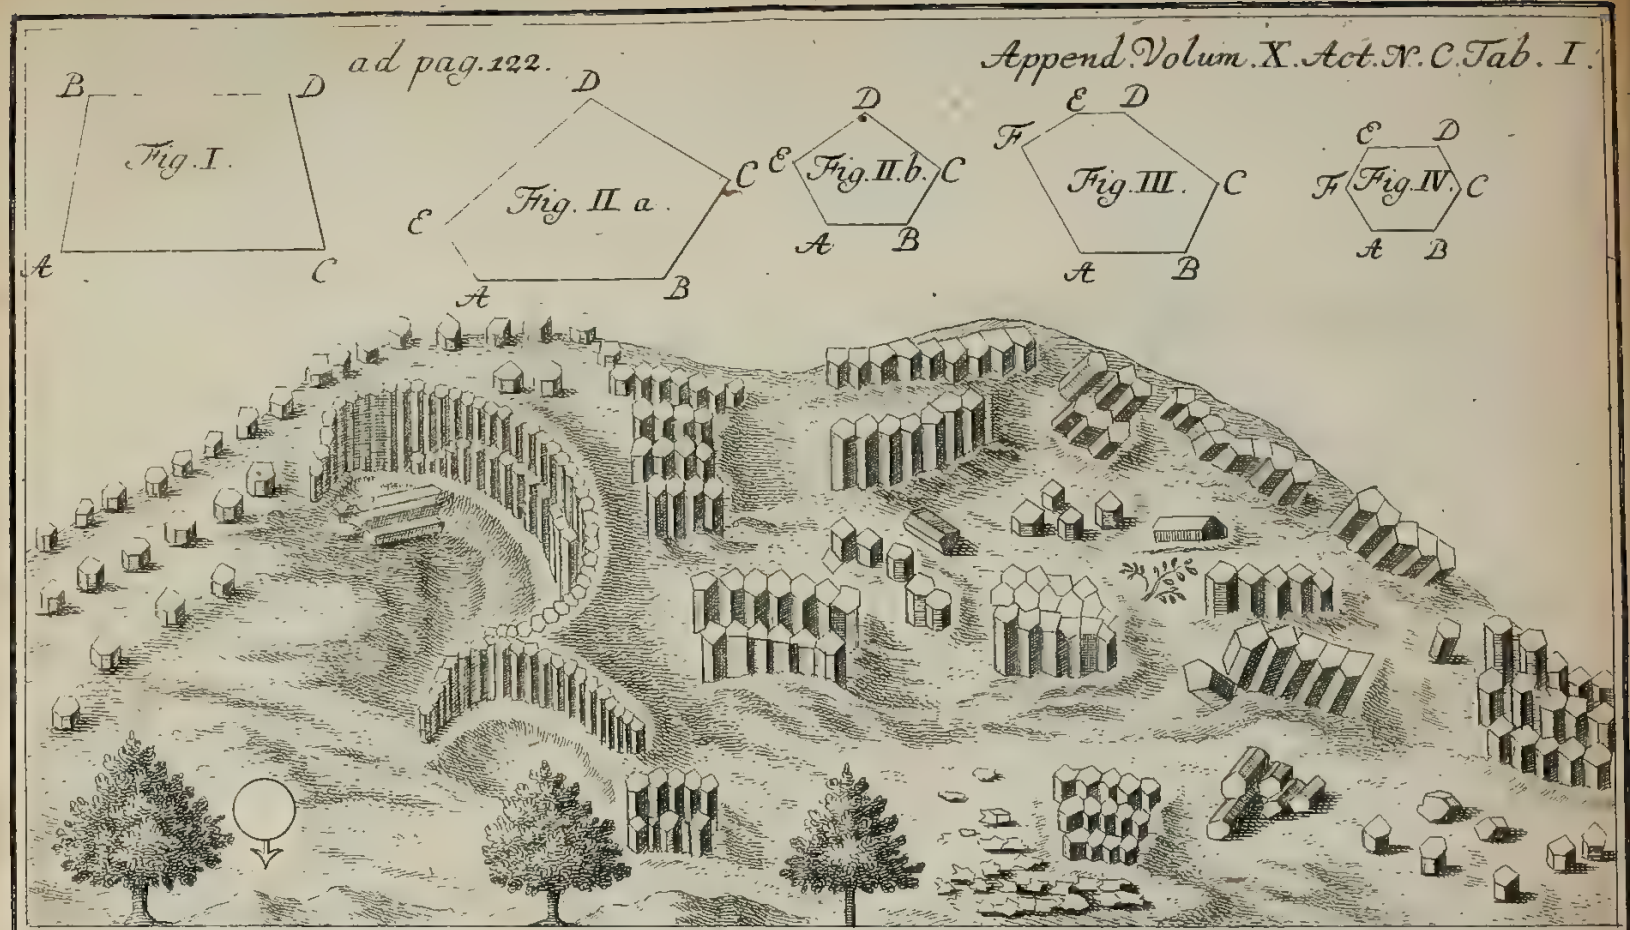 ad pag.122.
Append. Volum. X. Act. N. C. Tab. I.
B D
Fig. I.
A C
D
C
Fig. II a.
E
A B
D
E Fig. II. b. C
A B
E D
F
Fig. III. C
A B
E D
F Fig. IV. C
A B